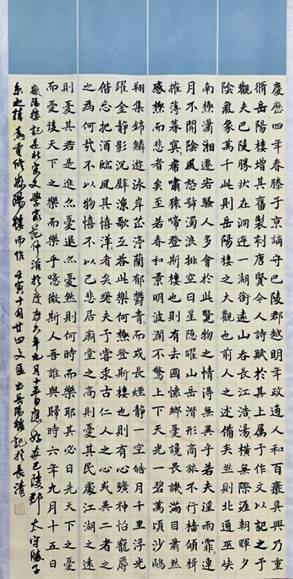 慶曆四年春滕子京謫守巴陵郡越明年政通人和百廢具興乃重
脩岳陽樓增其舊制刻唐賢今人詩賦於其上屬予作文以記之予
觀夫巴陵勝狀在洞庭一湖銜遠山吞長江浩々湯々橫無際涯朝暉夕
陰氣象萬千此則岳陽樓之大觀也前人之述備矣然則北通巫峽
南極瀟湘遷客騷人多會於此覽物之情得無異乎若夫霪雨霏々連
月不開陰風怒號濁浪排空日星隱曜山岳潛形商旅不行檣傾楫
摧薄暮冥々虎嘯猿啼登斯樓也則有去國懷鄉憂讒畏譏滿目蕭然
感極而悲者矣至若春和景明波瀾不驚上下天光一碧萬頃沙鷗
翔集錦鱗游泳岸芷汀蘭郁々青々而或長煙一空皓月千里浮光
躍金靜影沉璧漁歌互答此樂何極登斯樓也則有心曠神怡寵辱
偕忘把酒臨風其喜洋々者矣嗟夫予嘗求古仁人之心或異二者之
為何哉不以物喜不以己悲居廟堂之高則憂其民處江湖之遠
則憂其君是進亦憂退亦憂然則何時而樂耶其必曰先天下之憂
而憂後天下之樂而樂乎噫微斯人吾誰與歸時六年九月十五日
岳陽樓記是北宋文學家范仲淹於慶曆六年九月十五日應好友巴陵郡太守滕子
京之請為重修岳陽樓而作 壬寅十月廿四文 岳陽樓記於長清